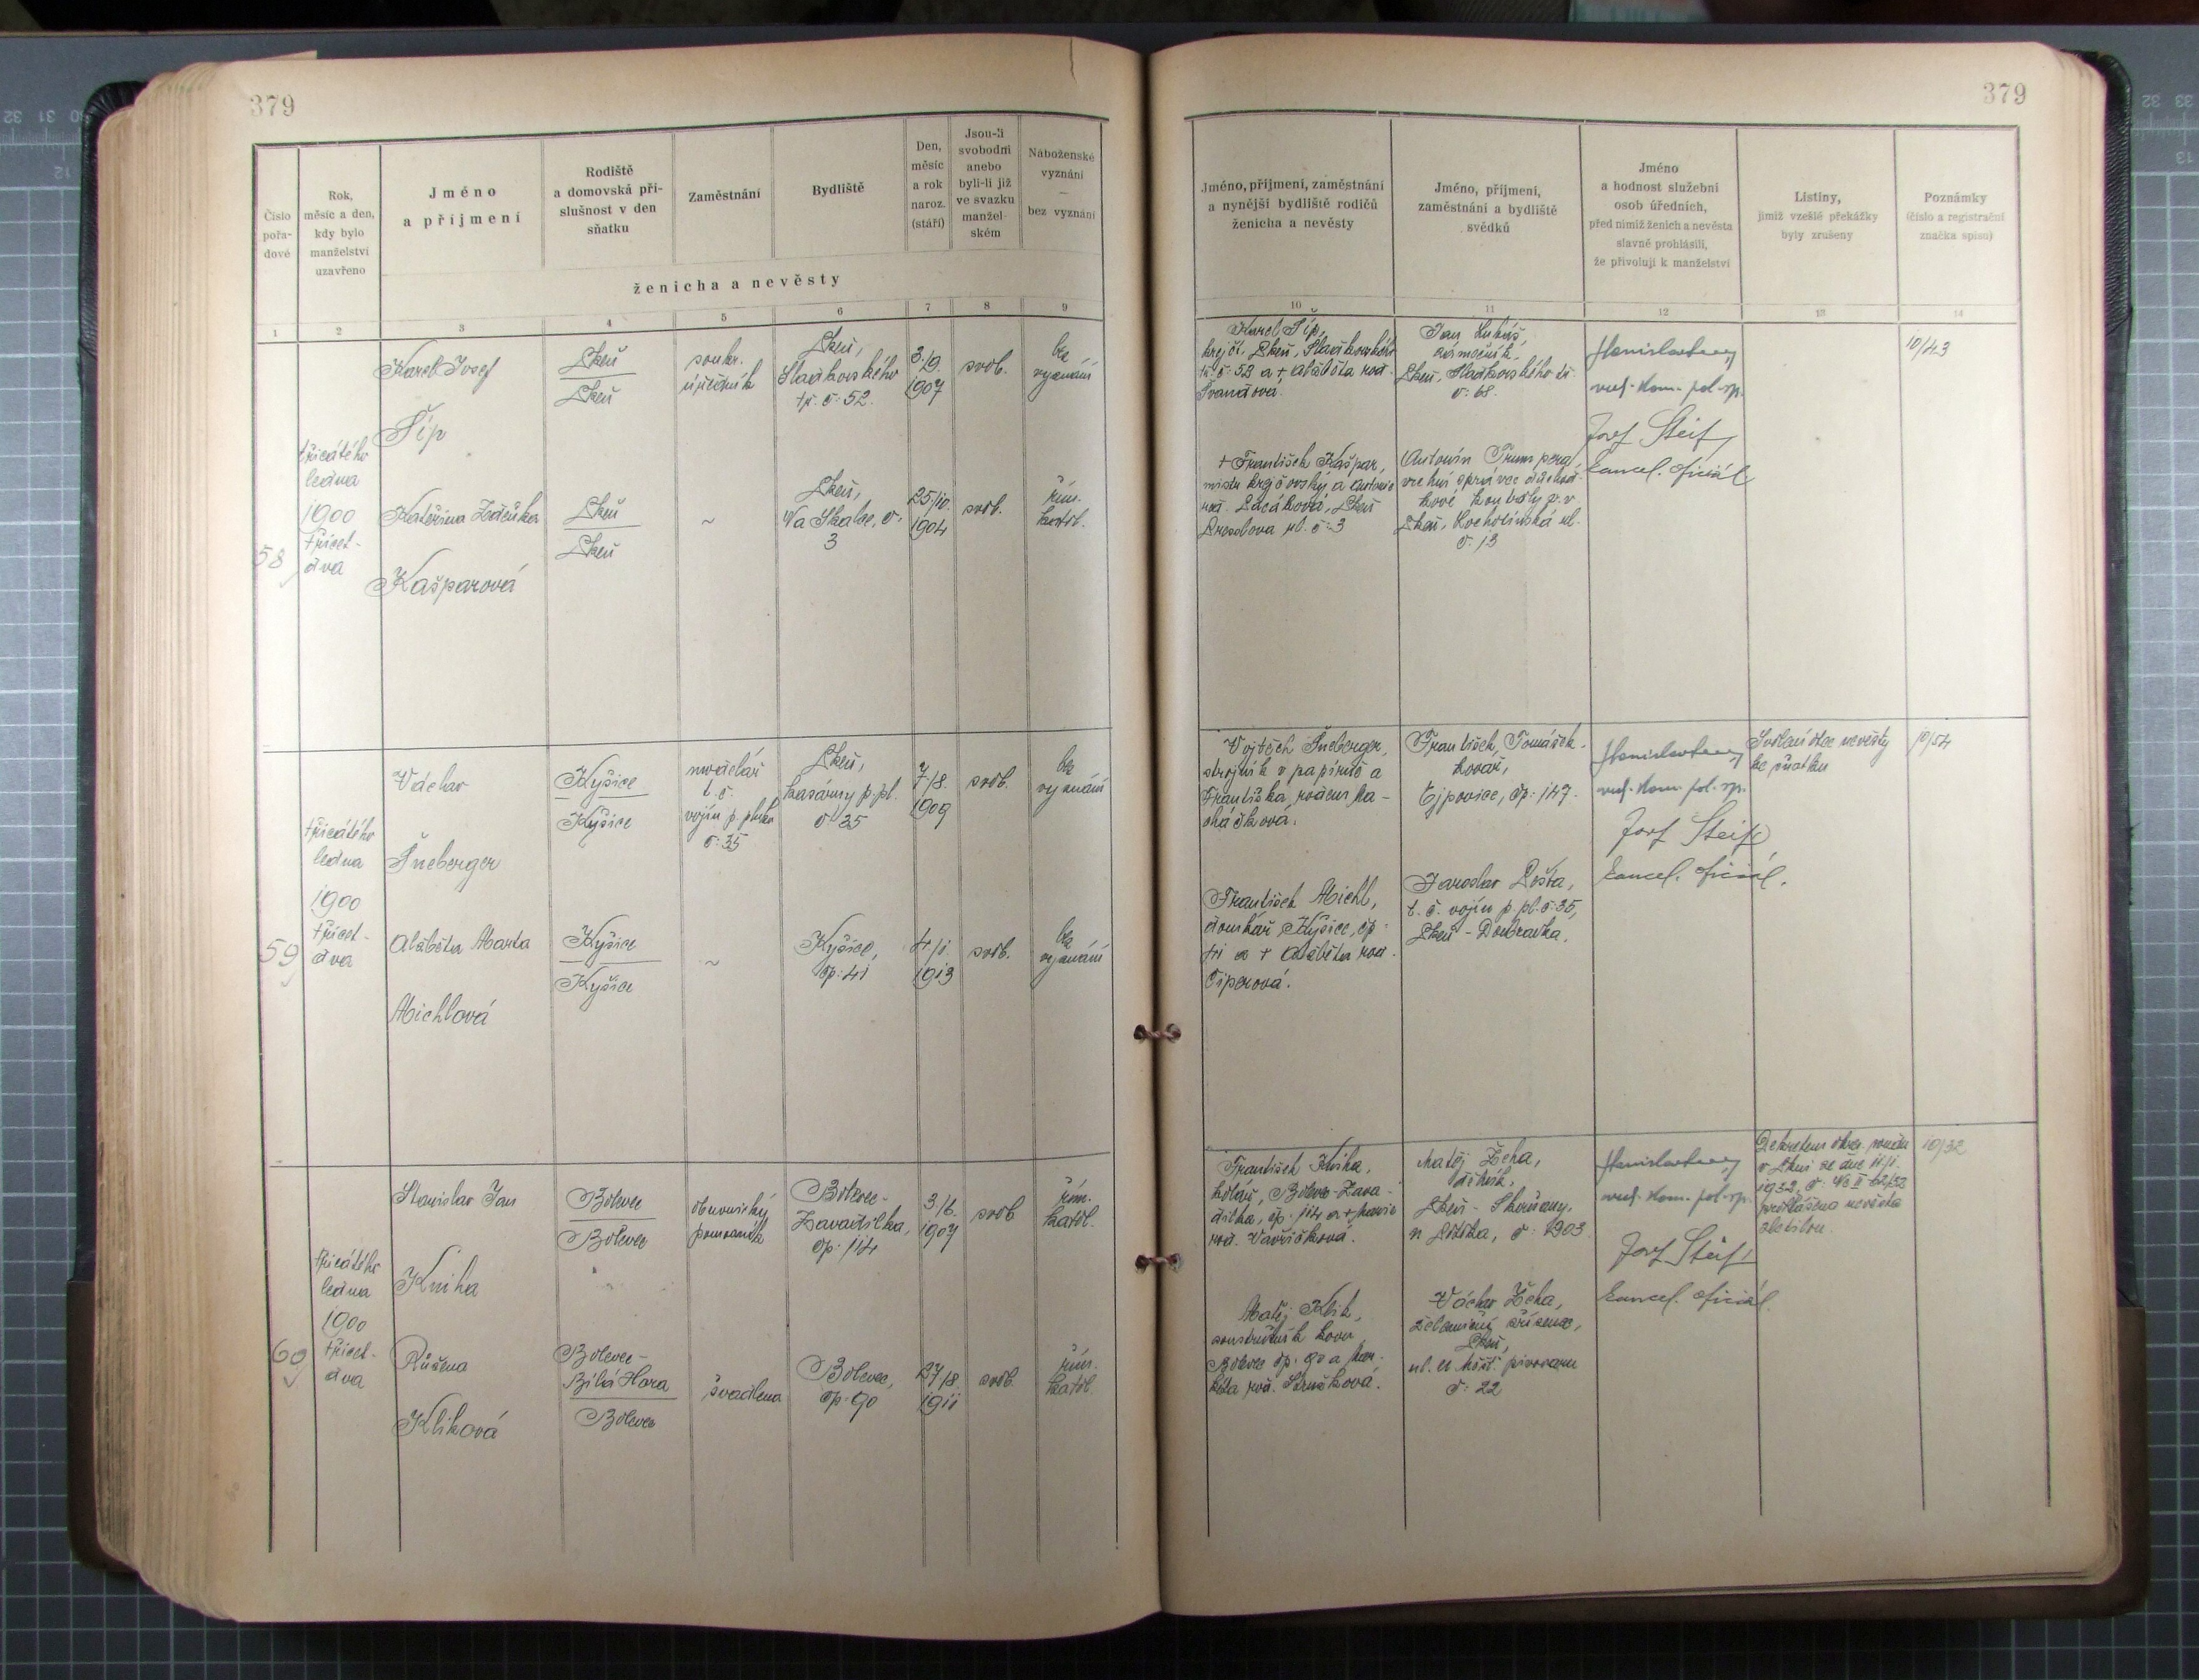 379
Číslo pořa-dové
Rok, měsíc a den, kdy bylo manželství uzavřeno
Jméno a příjmení
Rodiště a domovská pří-slušnost v den sňatku
Zaměstnání
Bydliště
Den, měsíc a rok naroz. (stáří)
Jsou-li svobodni anebo byli-li již ve svazku manžel-ském
Náboženské vyznání — bez vyznání
ženicha a nevěsty
1 2 3 4 5 6 7 8 9
58
třicátého
ledna
1900
třicet-
dva
Karel Josef
Šíp
Plzeň
Plzeň
soukr.
úředník
Plzeň,
Sladkovského
tř. č. 52.
3./9.
1907
svob.
bez
vyznání
Kateřina Zdeňka
Kašparová
Plzeň
Plzeň
~
Plzeň,
Na Skalce, č.
3
25./10.
1904
svob.
řím.
katol.
59
třicátého
ledna
1900
třicet-
dva
Václav
Šneberger
Kyšice
Kyšice
t. č.
vojín p. pluku
č. 35
Plzeň,
kasárny p. pl.
č. 35
7./8.
1909
svob.
bez
vyznání
Alžběta Marta
Michlová
Kyšice
Kyšice
~
Kyšice,
čp. 41
4./1.
1913
svob.
bez
vyznání
60
třicátého
ledna
1900
třicet-
dva
Stanislav Jan
Kniha
Bolevec
Bolevec
obuvnický
pomocník
Bolevec-
Zavadilka,
čp. 114
3./6.
1907
svob
řím.
katol.
Růžena
Kliková
Bolevec-
Bílá Hora
Bolevec
švadlena
Bolevec,
čp. 90
27./8.
1911
svob.
řím.
katol.
379
Jméno, příjmení, zaměstnání a nynější bydliště rodičů ženicha a nevěsty
Jméno, příjmení, zaměstnání a bydliště svědků
Jméno a hodnost služební osob úředních, před nimiž ženich a nevěsta slavně prohlásili, že přivolují k manželství
Listiny, jimiž vzešlé překážky byly zrušeny
Poznámky (číslo a registrační značka spisu)
10 11 12 13 14
Karel Šíp,
krejčí, Plzeň, Sladkovského
tř. č. 52 a + Alžběta roz.
Jan Lukáš,
zámečník,
Plzeň, Sladkovského tř.
č. 68.
vrch. kom. pol. sp.
Josef Steif,
kancel. oficiál
10/43
+ František Kašpar,
mistr krejčovský a Antonie
roz.
č. 3
Antonín
v
Plzeň, ul.
č. 13
Vojtěch Šneberger,
strojník v papírně a
Františka, rozená Ma-
cháčková.
František Tomášek.
kovář,
Ejpovice, čp. 147.
vrch. kom. pol. sp.
Josef Steif
kancel. oficiál.
Svolení otce nevěsty
ke sňatku
10/54
František Michl,
domkář, Kyšice, čp.
41 a + Alžběta roz.
Jaroslav Pošta,
t. č. vojín p. pl. č. 35,
Plzeň - Doubravka.
František Kniha,
kolář, Bolevec-Zava-
dilka, čp. 114 a + Marie
roz.
Matěj
dělník,
Plzeň - Skvrňany,
č. 1903
vrch. kom. pol. sp.
Josef Steif
kancel. oficiál.
Dekretem okres. soudu
v Plzni ze dne 11./1.
1932, č.
prohlášena nevěsta
zletilou.
10/32
Matěj Klik,
Bolevec čp. 90 a Mar-
kéta roz.
Václav
železniční zřízenec,
Plzeň,
ul. U měšť. pivovaru
č. 22